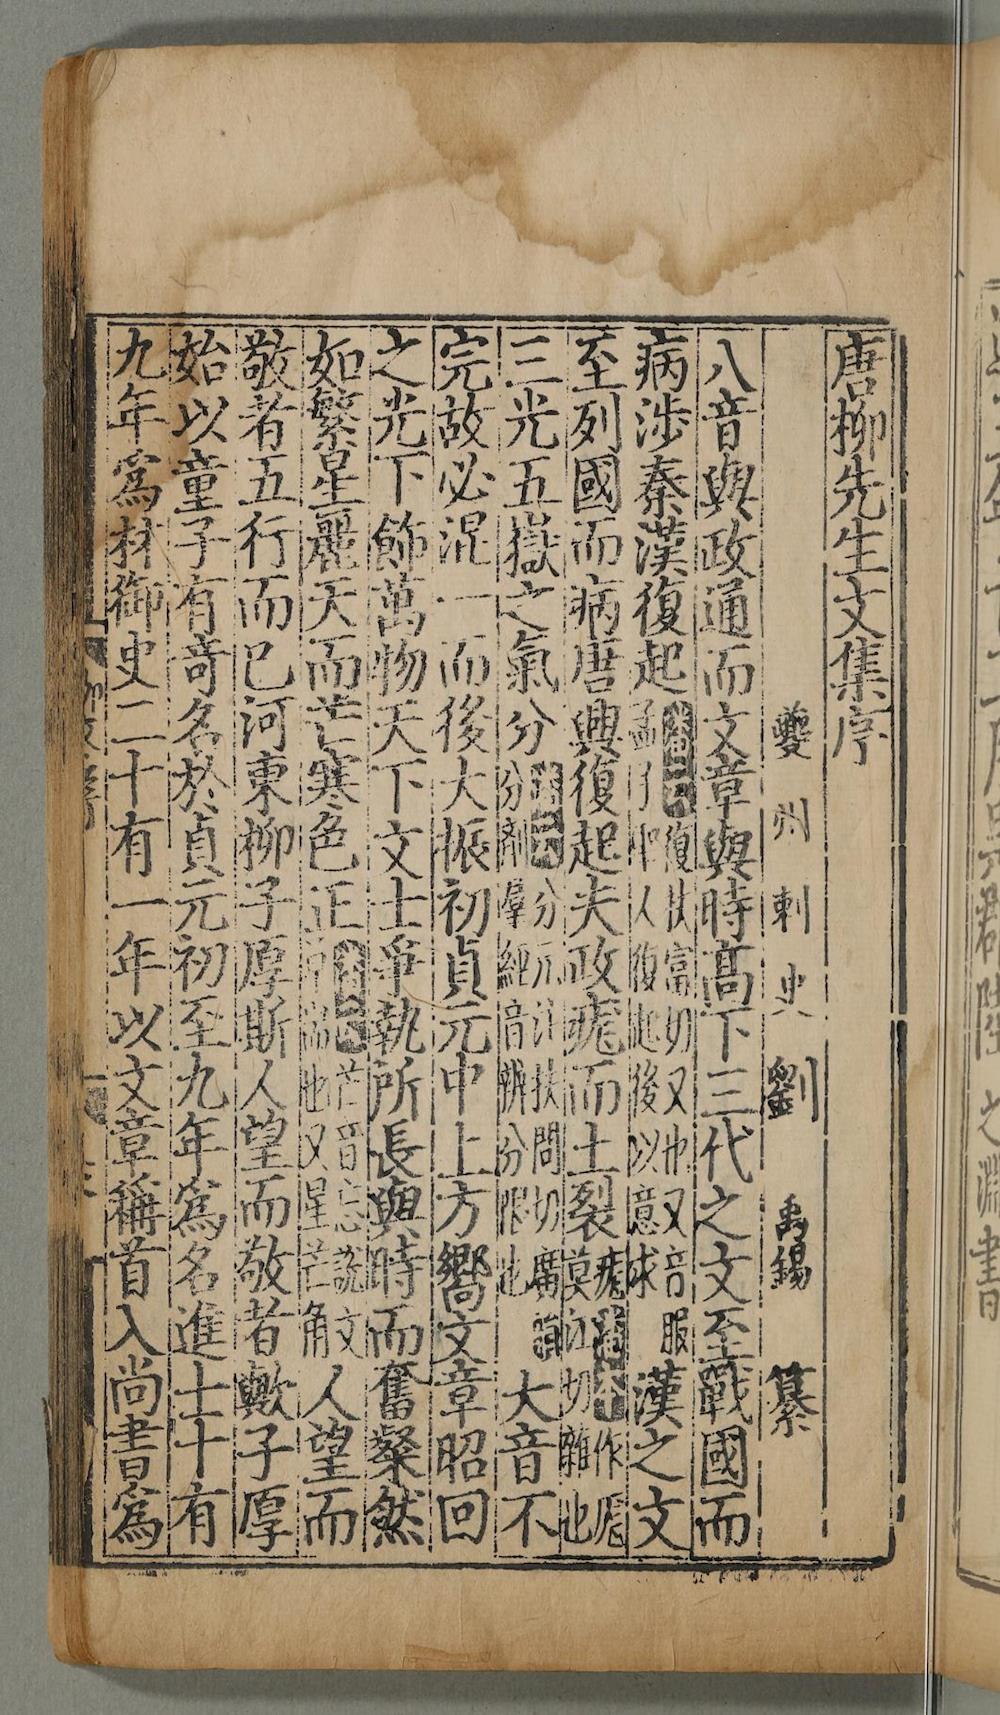 唐柳先生文集序
夔州刺史劉禹錫纂
八音與政通而文章與時髙下三代之文至戰國而
病涉秦漢復起復扶富切又也又音服孟子聖人復起後以意求漢之文
至列國而病唐興復起夫政痝而土裂痝作厖莫江切雜也
三光五嶽之氣分分扶問切分劑羣經音辨分限也大音不
完故必混一而後大振初貞元中上方嚮文章昭回
之光下飾萬物天下文士爭執所長與時而奮粲然
如繁星麗天而芒寒色正芒音忘說文也又星芒角人望而
敬者五行而已河東柳子厚斯人望而敬者歟子厚
始以童子有奇名於貞元初至九年爲名進士十有
九年爲材御史二十有一年以文章稱首入尚書爲